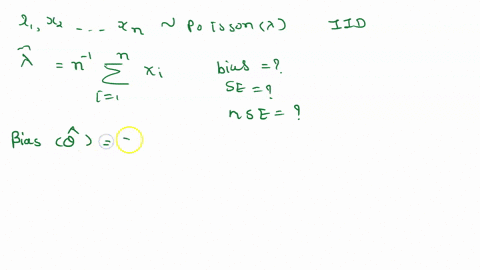 x₁, x₂ ---- xₙ ~ Poisson(λ) IID
λ̂ = n⁻¹ ∑ᵢ₌₁ⁿ xᵢ bias = ?
SE = ?
nSE = ?
Bias (θ̂) = -